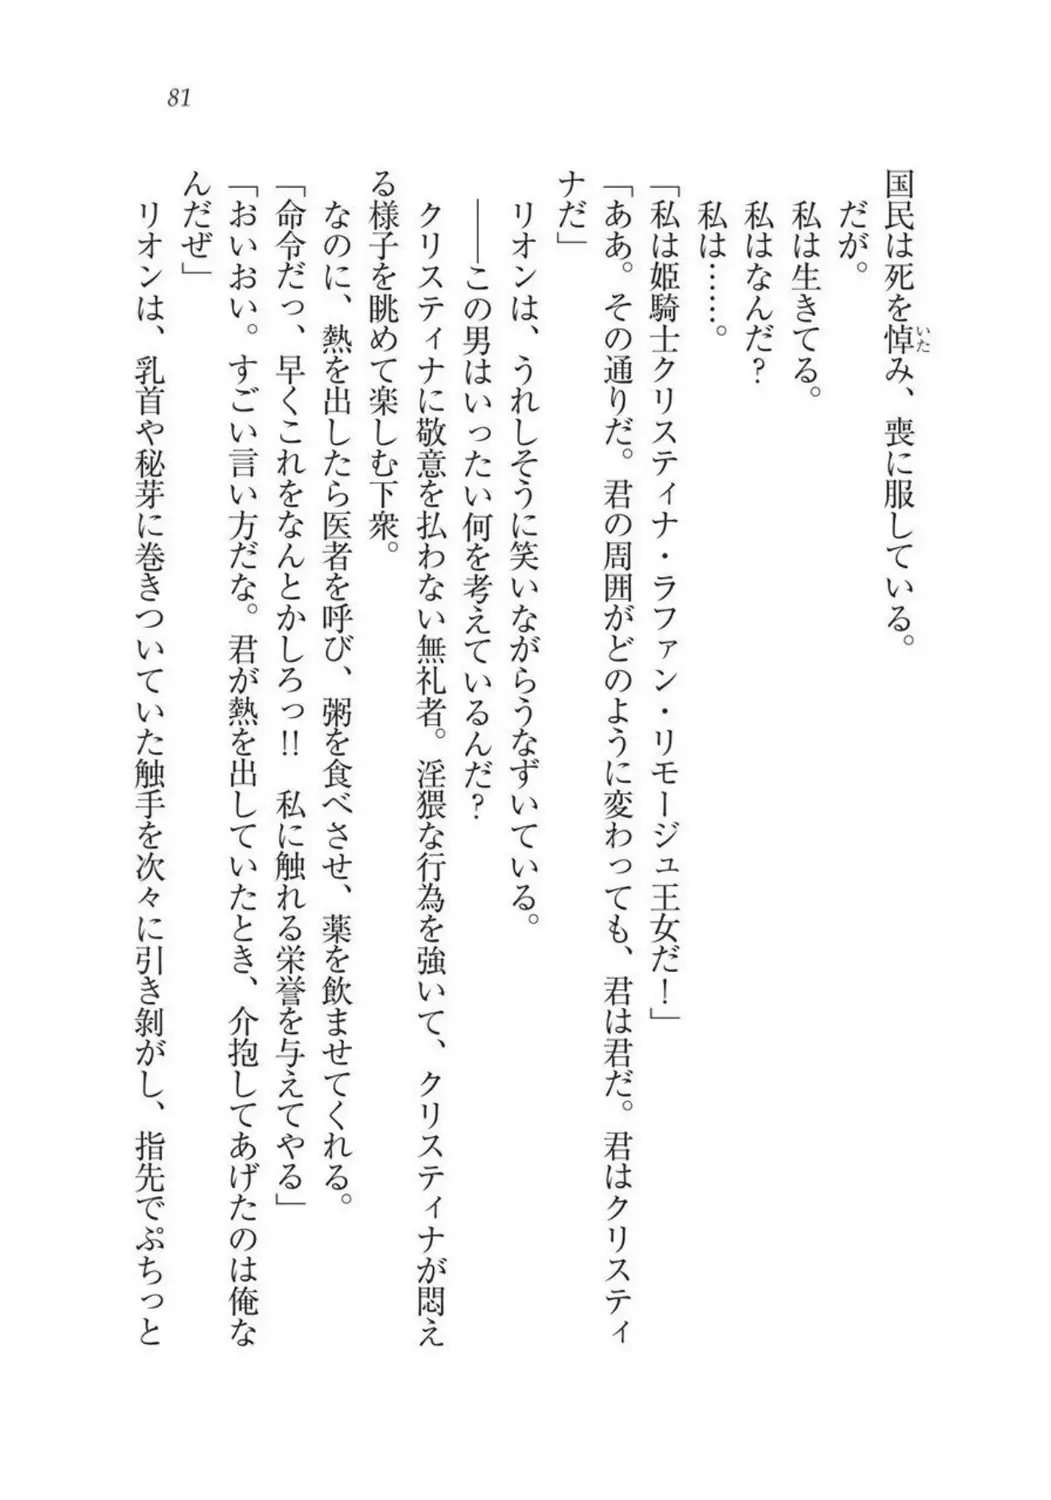 81
国民は死を悼み、喪に服している。
いた
だが。
私は生きてる。
私はなんだ？
私は……。
「私は姫騎士クリスティナ・ラファン・リモージュ王女だ！」
「ああ。その通りだ。君の周囲がどのように変わっても、君は君だ。君はクリスティ
ナだ」
リオンは、うれしそうに笑いながらうなずいている。
――この男はいったい何を考えているんだ？
クリスティナに敬意を払わない無礼者。淫猥な行為を強いて、クリスティナが悶え
る様子を眺めて楽しむ下衆。
なのに、熱を出したら医者を呼び、粥を食べさせ、薬を飲ませてくれる。
「命令だっ、早くこれをなんとかしろっ!!　私に触れる栄誉を与えてやる」
「おいおい。すごい言い方だな。君が熱を出していたとき、介抱してあげたのは俺な
んだぜ」
リオンは、乳首や秘芽に巻きついていた触手を次々に引き剝がし、指先でぷちっと